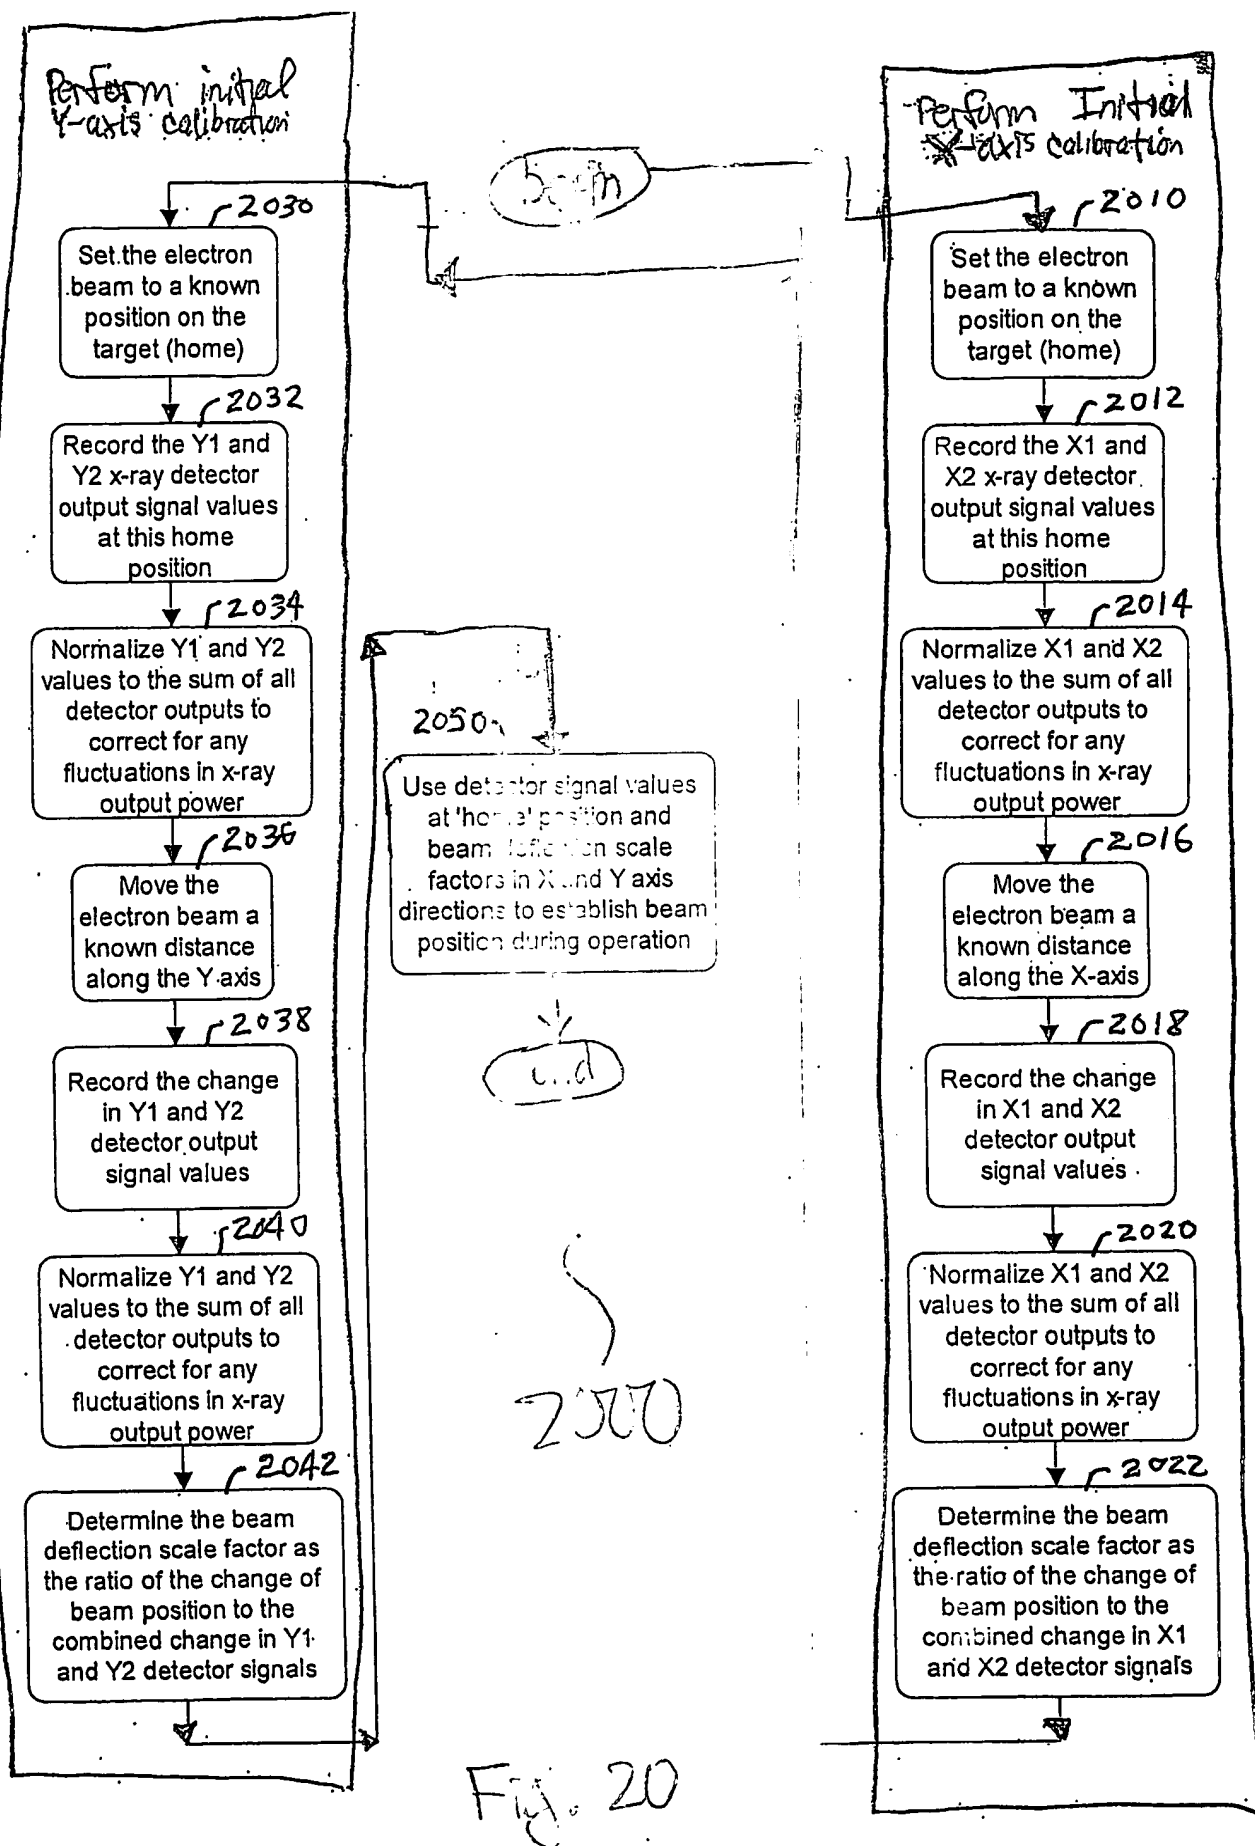 Perform initial
Y-axis calibration
2030
Set the electron
beam to a known
position on the
target (home)
2032
Record the Y1 and
Y2 x-ray detector
output signal values
at this home
position
2034
Normalize Y1 and Y2
values to the sum of all
detector outputs to
correct for any
fluctuations in x-ray
output power
2036
Move the
electron beam a
known distance
along the Y-axis
2038
Record the change
in Y1 and Y2
detector output
signal values
2040
Normalize Y1 and Y2
values to the sum of all
detector outputs to
correct for any
fluctuations in x-ray
output power
2042
Determine the beam
deflection scale factor as
the ratio of the change of
beam position to the
combined change in Y1
and Y2 detector signals
2050
Use detector signal values
at 'home' position and
beam deflection scale
factors in X and Y axis
directions to establish beam
position during operation
2000
Fig. 20
Perform Initial
X-axis calibration
2010
Set the electron
beam to a known
position on the
target (home)
2012
Record the X1 and
X2 x-ray detector
output signal values
at this home
position
2014
Normalize X1 and X2
values to the sum of all
detector outputs to
correct for any
fluctuations in x-ray
output power
2016
Move the
electron beam a
known distance
along the X-axis
2018
Record the change
in X1 and X2
detector output
signal values
2020
Normalize X1 and X2
values to the sum of all
detector outputs to
correct for any
fluctuations in x-ray
output power
2022
Determine the beam
deflection scale factor as
the ratio of the change of
beam position to the
combined change in X1
and X2 detector signals